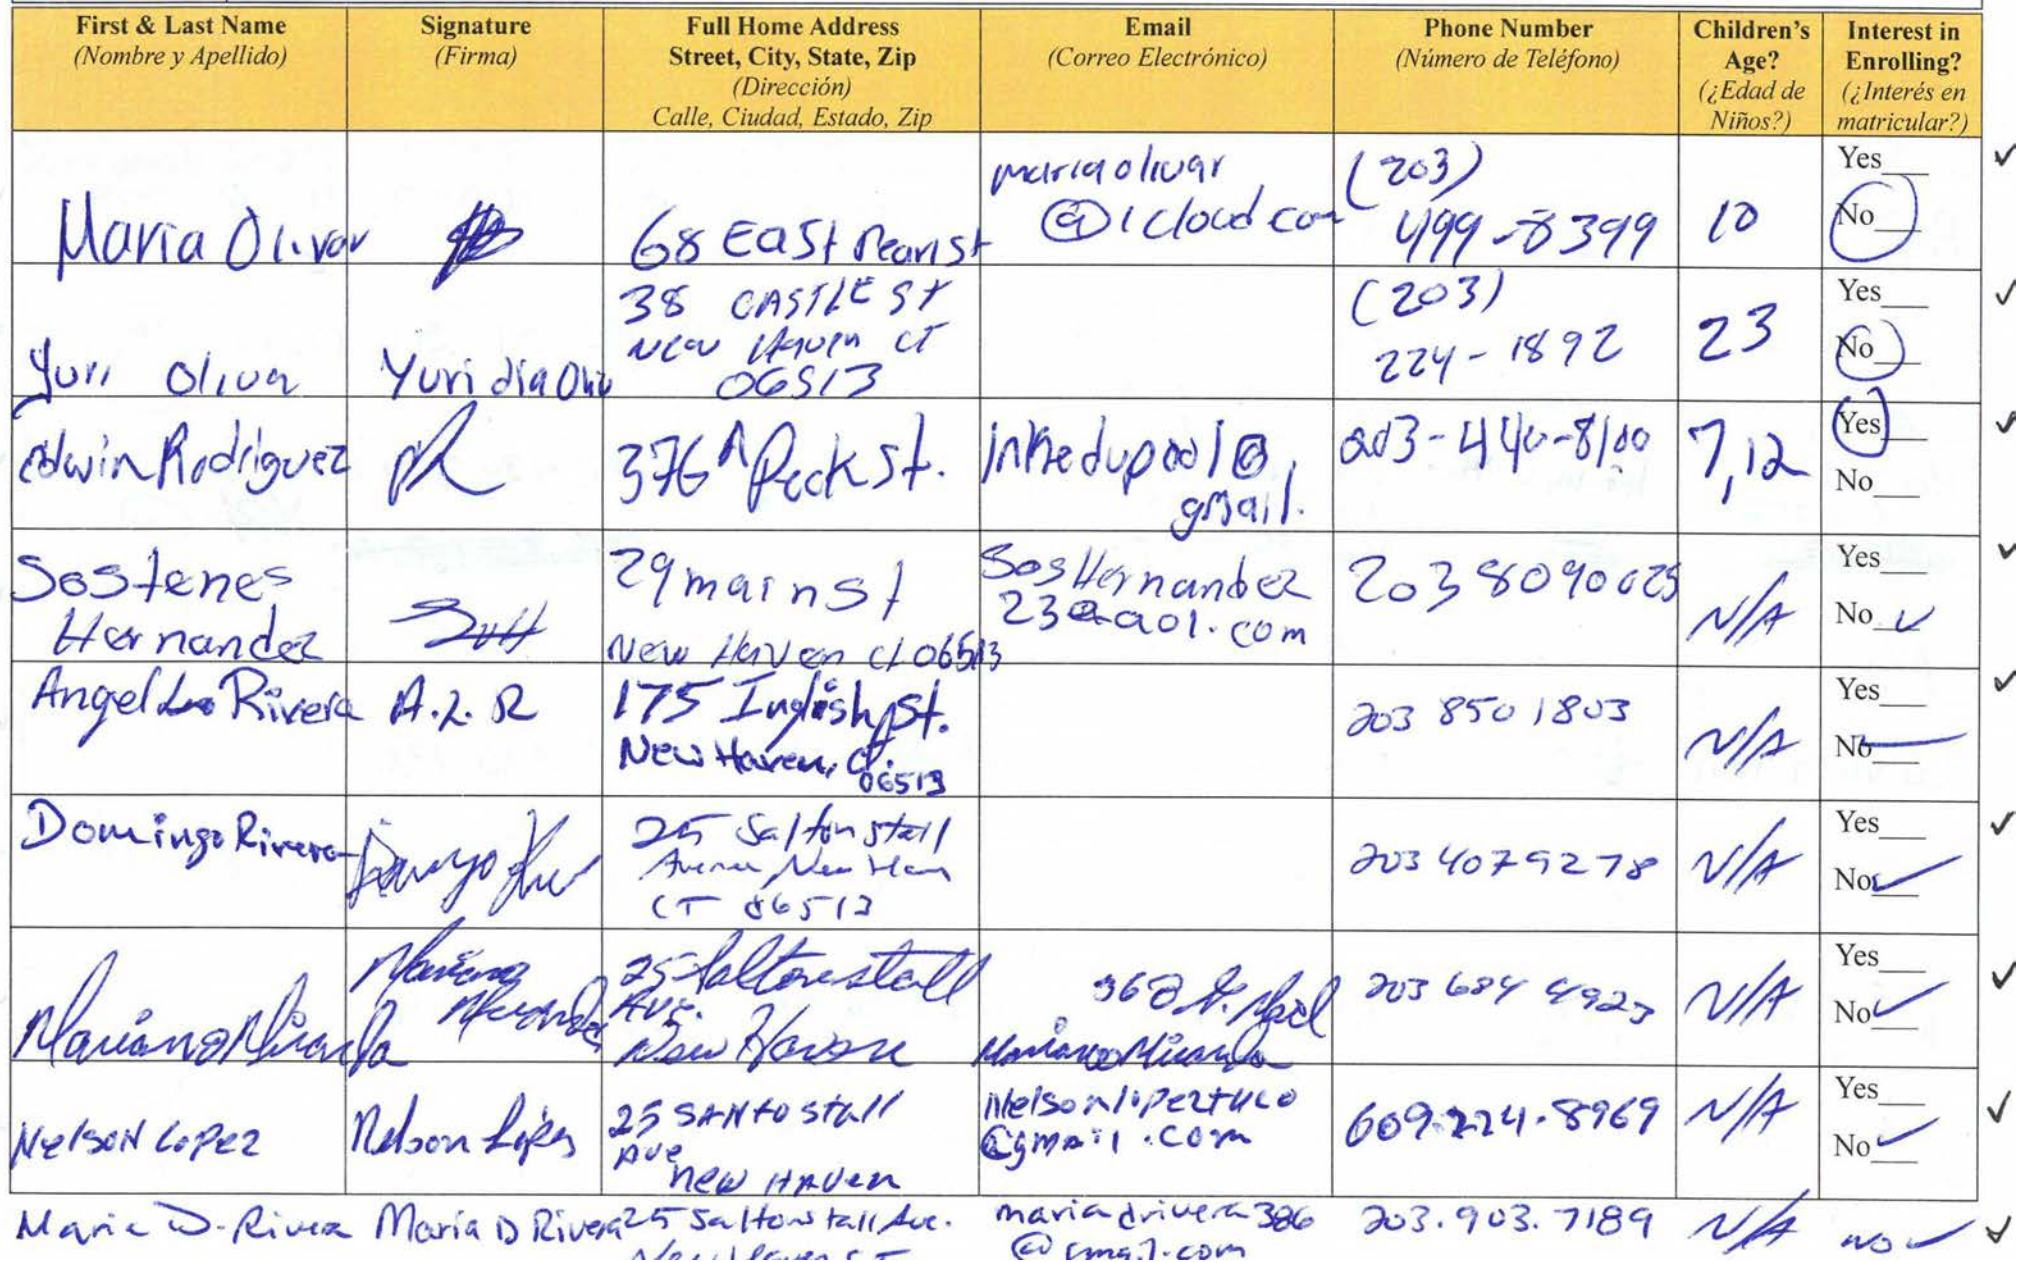 First & Last Name
(Nombre y Apellido)
Signature
(Firma)
Full Home Address
Street, City, State, Zip
(Dirección)
Calle, Ciudad, Estado, Zip
Email
(Correo Electrónico)
Phone Number
(Número de Teléfono)
Children's
Age?
(¿Edad de
Niños?)
Interest in
Enrolling?
(¿Interés en
matricular?)
Maria Olivar
68 East Pearl st
mariaolivar
@icloud.com
(203)
499-8399
10
Yes
No
Yuri Oliva
Yuridia
38 CASTLE ST
New Haven CT
06513
(203)
224-1892
23
Yes
No
Edwin Rodriguez
376 A Peck St.
@
gmail.
203-440-8100
7,12
Yes
No
Sostenes
Hernandez
29 main st
New Haven ct 06513
SosHernandez
23@aol.com
203 8090025
N/A
Yes
No
Angel Rivera
A.L.R
175 English St.
New Haven, Ct.
06513
203 850 1803
N/A
Yes
No
Domingo Rivera
25 Saltonstall
Avenue New Haven
CT 06513
203 4079278
N/A
Yes
No
Mariano Miranda
Mariano
25 Saltonstall
Ave.
New Haven
Mariano Miranda
203 684 4923
N/A
Yes
No
Nelson Lopez
Nelson López
25 SANTOstall
Ave
New Haven
Nelsonlopeztuco
@gmail.com
609-224-8969
N/A
Yes
No
Maria D. Rivera
Maria D Rivera
25 Saltonstall Ave.
New Haven CT
mariadrivera386
@gmail.com
203.903.7189
N/A
no